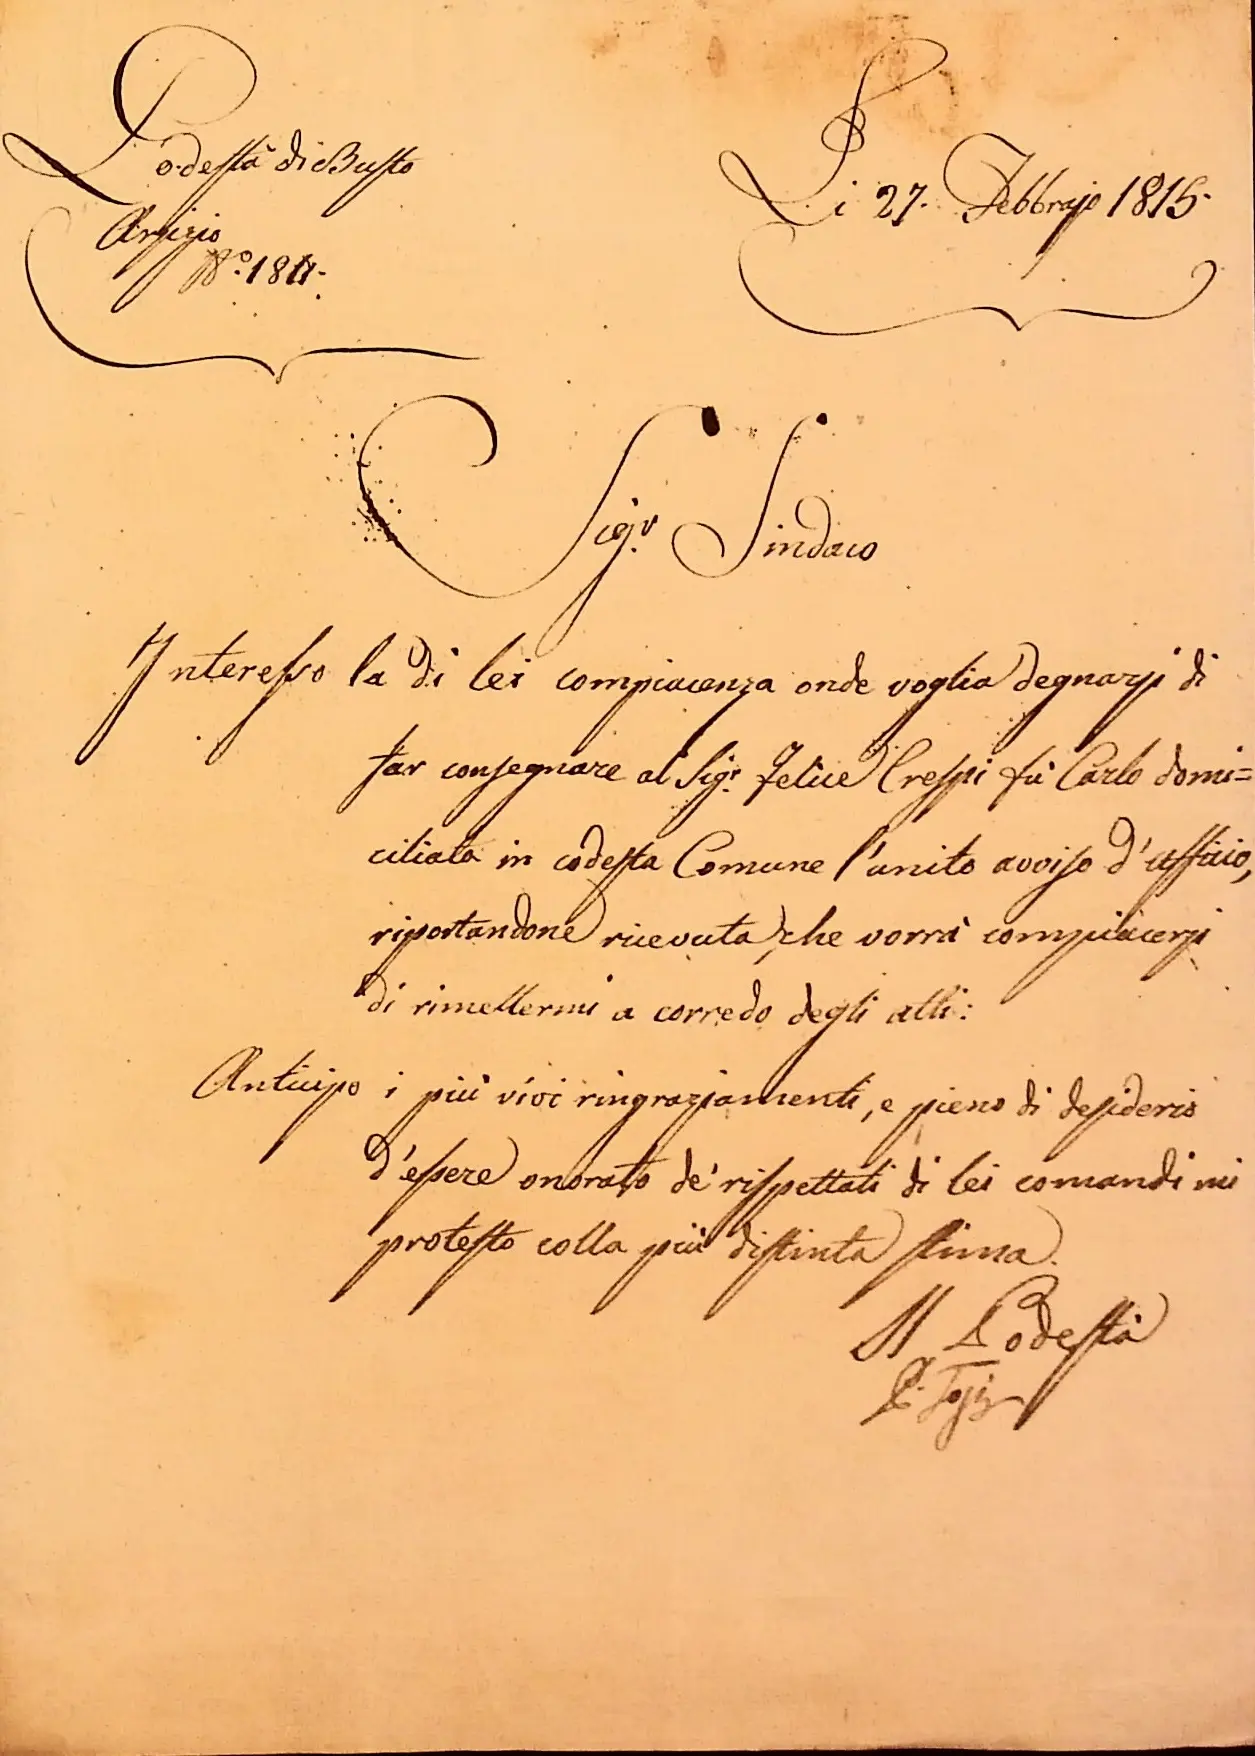 Podestà di Busto
Arsizio
Li 27. Febbrajo 1815.
Sig.r Sindaco
Interesso la di lei compiacenza onde voglia degnarsi di
far consegnare al Sig.r Felice Crespi fù Carlo domi=
ciliato in codesta Comune l'unito avviso d'ufficio,
riportandone ricevuta, che vorrà compiacersi
di rimettermi a corredo degli atti:
Anticipo i più vivi ringraziamenti, e pieno di desiderio
d'essere onorato de' rispettati di lei comandi mi
protesto colla più distinta stima.
Il Podestà